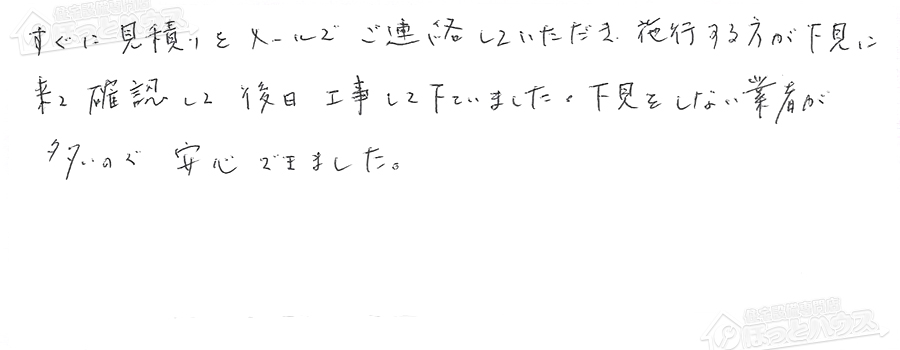 すぐに見積りをメールでご連絡していただき、施行する方が下見に
来て確認して後日工事して下さいました。下見をしない業者が
多いので安心できました。
ほっとハウス